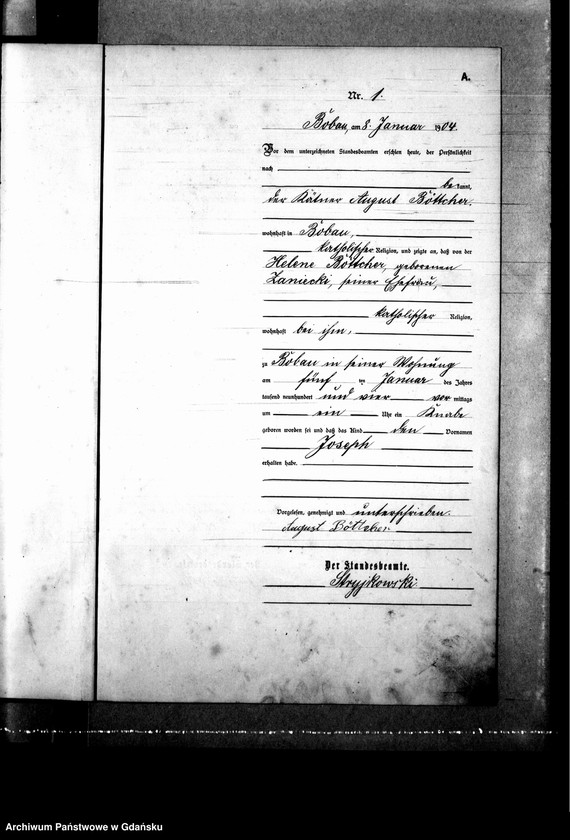 A.
Nr. 1.
Bobau, am 8. Januar 1904.
Vor dem unterzeichneten Standesbeamten erschien heute, der Persönlichkeit
nach
bekannt,
der Kätner August Böttcher,
wohnhaft in Bobau,
katholischer Religion, und zeigte an, daß von der
Helene Böttcher, geborenen
Zaniecki, seiner Ehefrau,
katholischer Religion,
wohnhaft bei ihm,
zu Bobau in seiner Wohnung
am fünf ten Januar des Jahres
tausend neunhundert und vier vor mittags
um ein Uhr ein Knabe
geboren worden sei und daß das Kind den Vornamen
Joseph
erhalten habe.
Vorgelesen, genehmigt und unterschrieben.
August Böttcher
Der Standesbeamte.
Stryjkowski
Archiwum Państwowe w Gdańsku